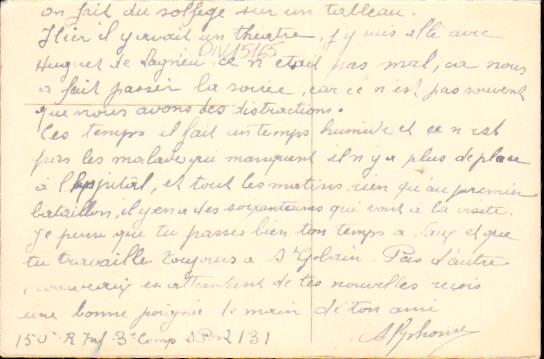 on fait du solfège sur un tableau.
Hier il y avait un théatre, j'y suis allé avec
DIV15165
Huguet de Lagnieu ce n'etait pas mal, ca nous
a fait passer la soirée, car ce n'est pas souvent
que nous avons des distractions.
Ces temps il fait un temps humide et ce n'est
pas les malades qui manquent il n'y a plus de place
à l'hopital, et tout les matins, rien qu'au premier
bataillon, il y en a des soixantaines qui vont à la visite.
Je pense que tu passes bien ton temps a Vaux et que
tu travailles toujours a St Gobain. Pas d'autre
en attendant de tes nouvelles reçois
une bonne poignée de main de ton ami
Alphonse
150e R Inf 3e Comp S P 131